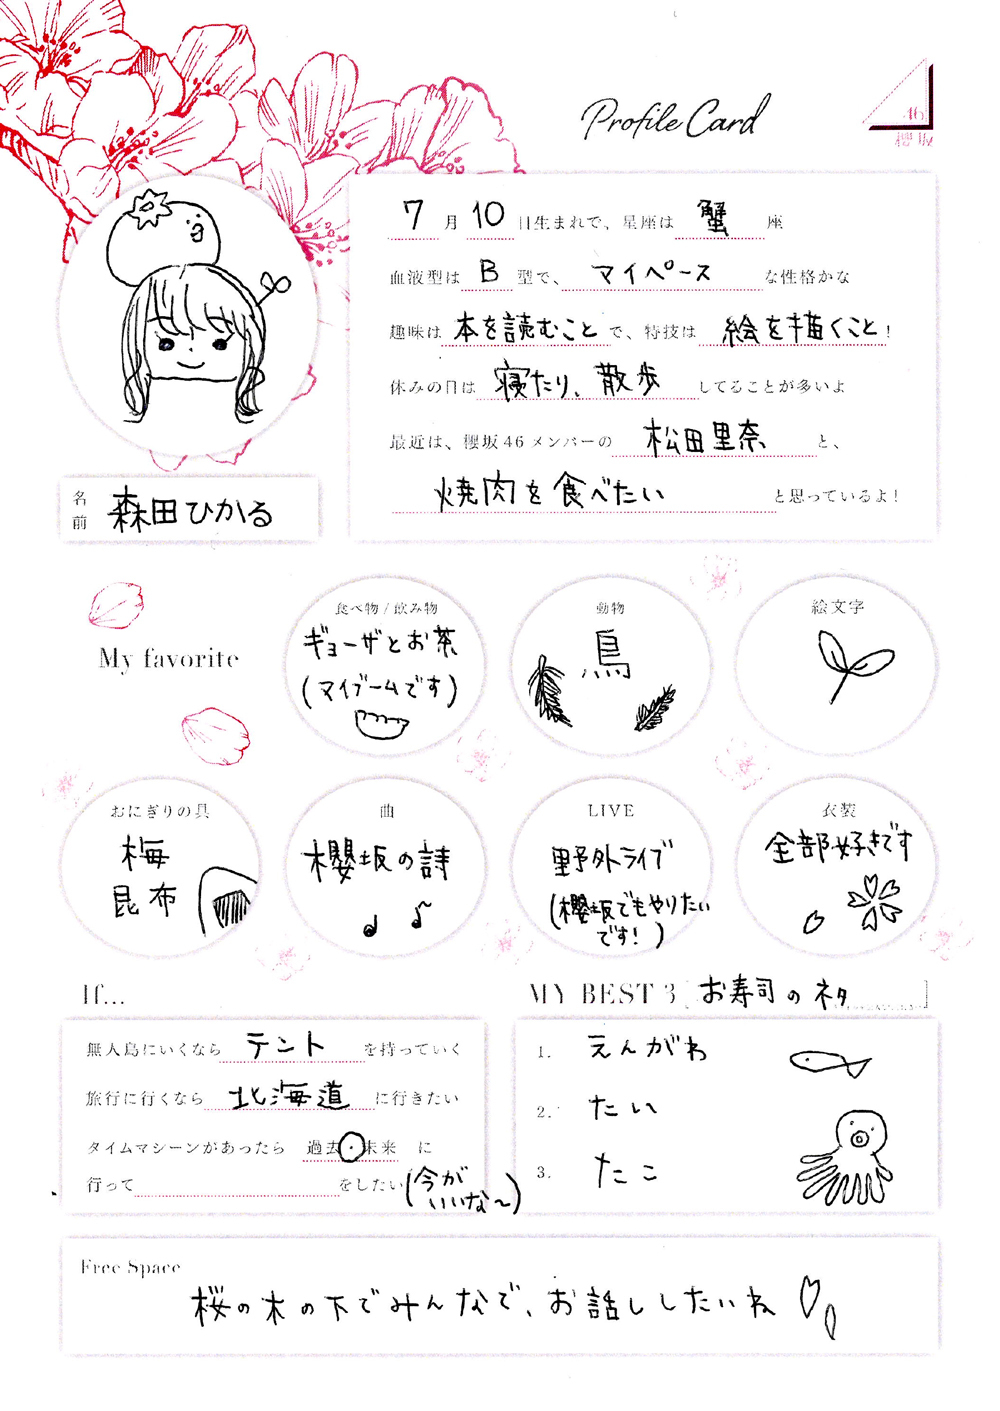 Profile Card
46
櫻坂
7月10日生まれで、星座は蟹座
血液型はB型で、マイペースな性格かな
趣味は本を読むことで、特技は絵を描くこと!
休みの日は寝たり、散歩してることが多いよ
最近は、櫻坂46メンバーの松田里奈と、
焼肉を食べたいと思っているよ!
名前 森田ひかる
My favorite
食べ物/飲み物
ギョーザとお茶
(マイブームです)
動物
鳥
絵文字
おにぎりの具
梅
昆布
曲
櫻坂の詩
LIVE
野外ライブ
(櫻坂でもやりたい
です!)
衣装
全部好きです
If...
無人島にいくならテントを持っていく
旅行に行くなら北海道に行きたい
タイムマシーンがあったら 過去・未来 に
行って をしたい(今が
いいな〜)
MY BEST 3 [お寿司のネタ]
1. えんがわ
2. たい
3. たこ
Free Space
桜の木の下でみんなで、お話ししたいね